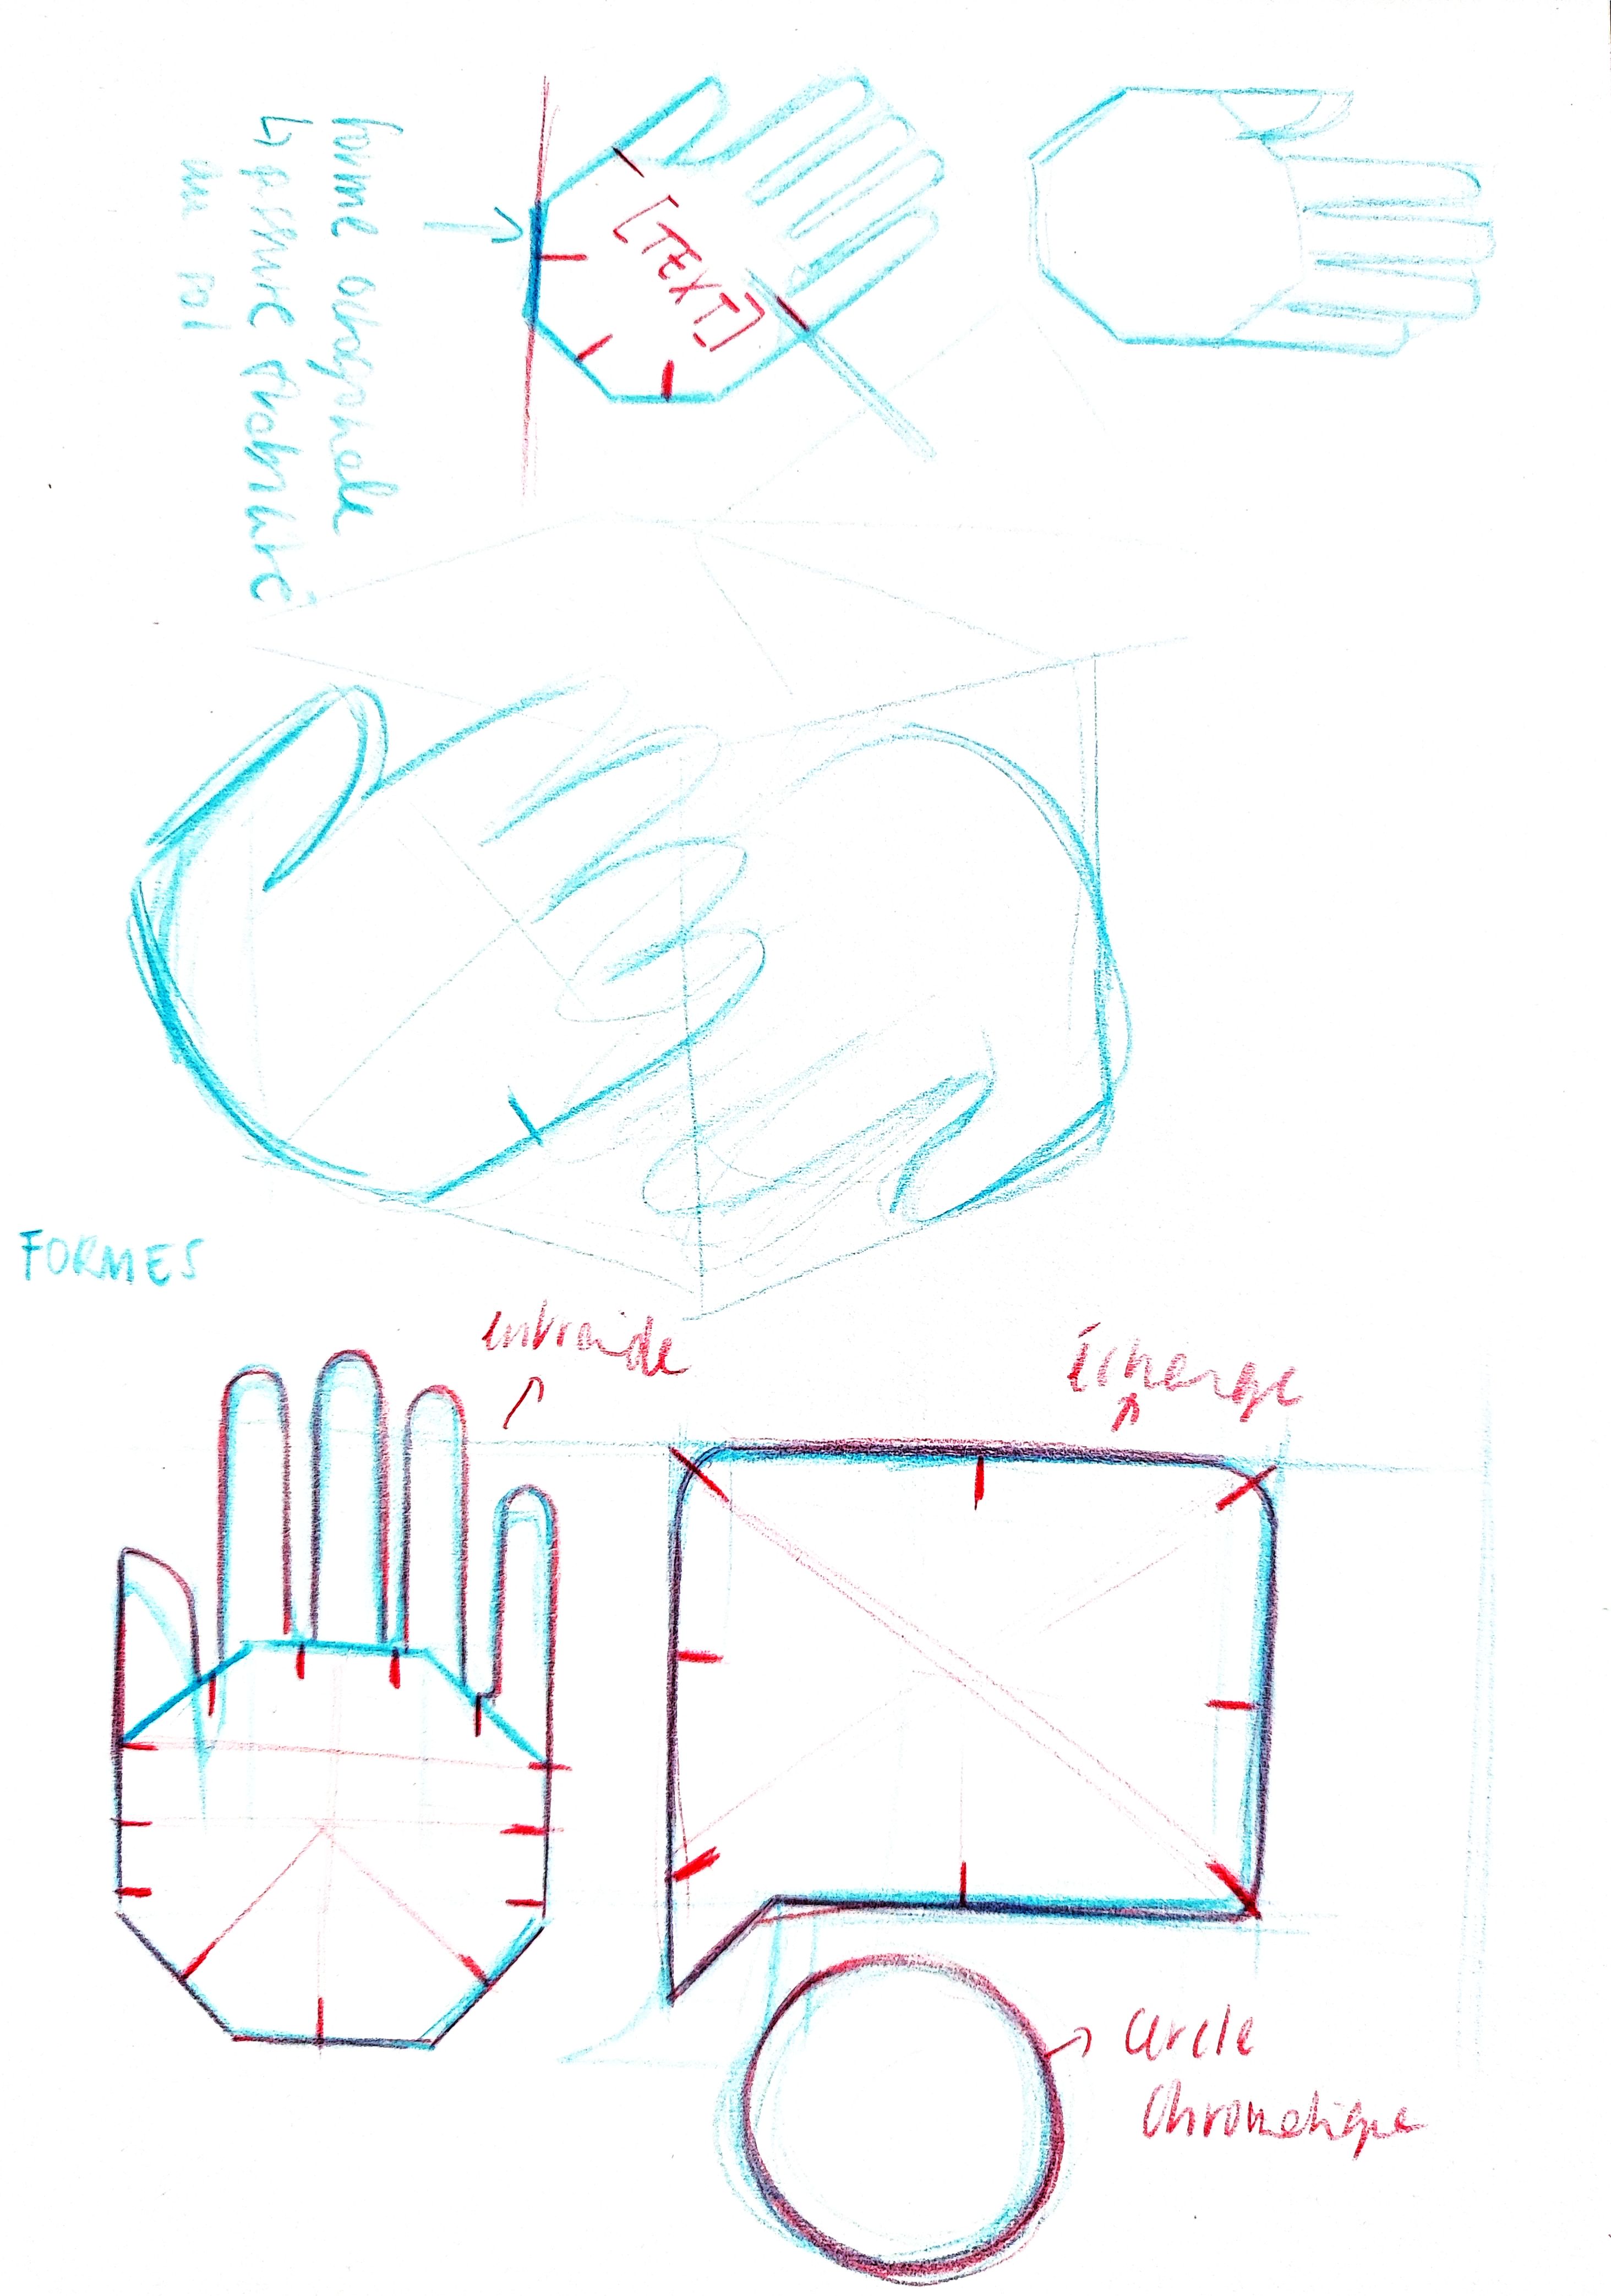 forme octogonale
↳ permet stabilité
au sol
[TEXT]
FORMES
entraide
échange
cercle
chromatique